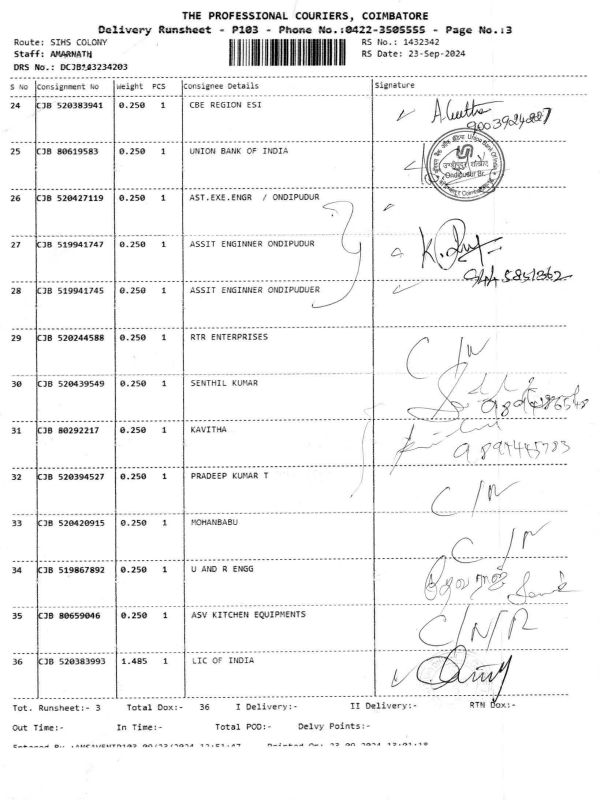 THE PROFESSIONAL COURIERS, COIMBATORE
Delivery Runsheet - P103 - Phone No.:0422-3505555 - Page No.:3
Route: SIHS COLONY
RS No.: 1432342
Staff: AMARNATH
RS Date: 23-Sep-2024
DRS No.: DCJB103234203
S No Consignment No Weight PCS Consignee Details Signature
24 CJB 520383941 0.250 1 CBE REGION ESI
25 CJB 80619583 0.250 1 UNION BANK OF INDIA
Ondipudur Br.
26 CJB 520427119 0.250 1 AST.EXE.ENGR / ONDIPUDUR
27 CJB 519941747 0.250 1 ASSIT ENGINNER ONDIPUDUR
28 CJB 519941745 0.250 1 ASSIT ENGINNER ONDIPUDUER
29 CJB 520244588 0.250 1 RTR ENTERPRISES
C/N
30 CJB 520439549 0.250 1 SENTHIL KUMAR
31 CJB 80292217 0.250 1 KAVITHA
32 CJB 520394527 0.250 1 PRADEEP KUMAR T
C/N
33 CJB 520420915 0.250 1 MOHANBABU
C/N
34 CJB 519867892 0.250 1 U AND R ENGG
35 CJB 80659046 0.250 1 ASV KITCHEN EQUIPMENTS
C/N/R
36 CJB 520383993 1.485 1 LIC OF INDIA
Tot. Runsheet:- 3 Total Dox:- 36 I Delivery:- II Delivery:- RTN Dox:-
Out Time:- In Time:- Total POD:- Delvy Points:-